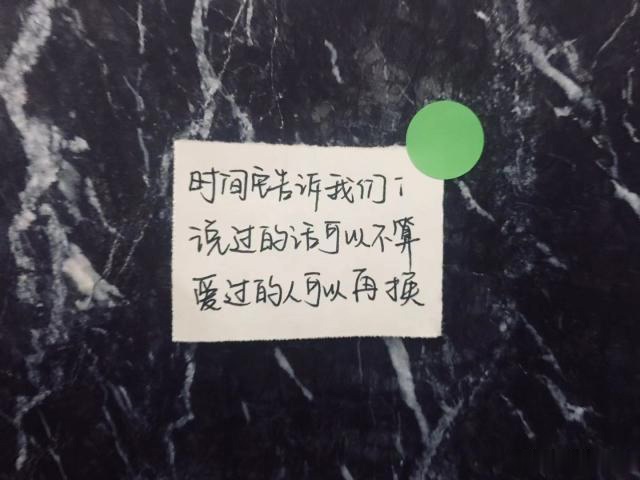 时间它告诉我们：
说过的话可以不算
爱过的人可以再换